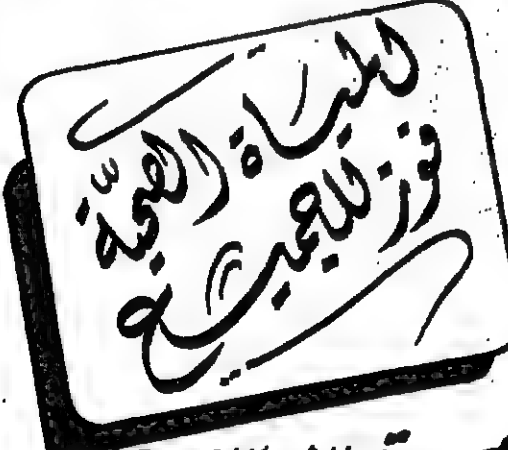 الحياة الصحيّة
فوز للجميع